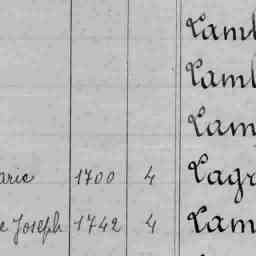 Lamb
Lamb
Lam
arie 1700 4 Lagr
e Joseph 1742 4 Lam